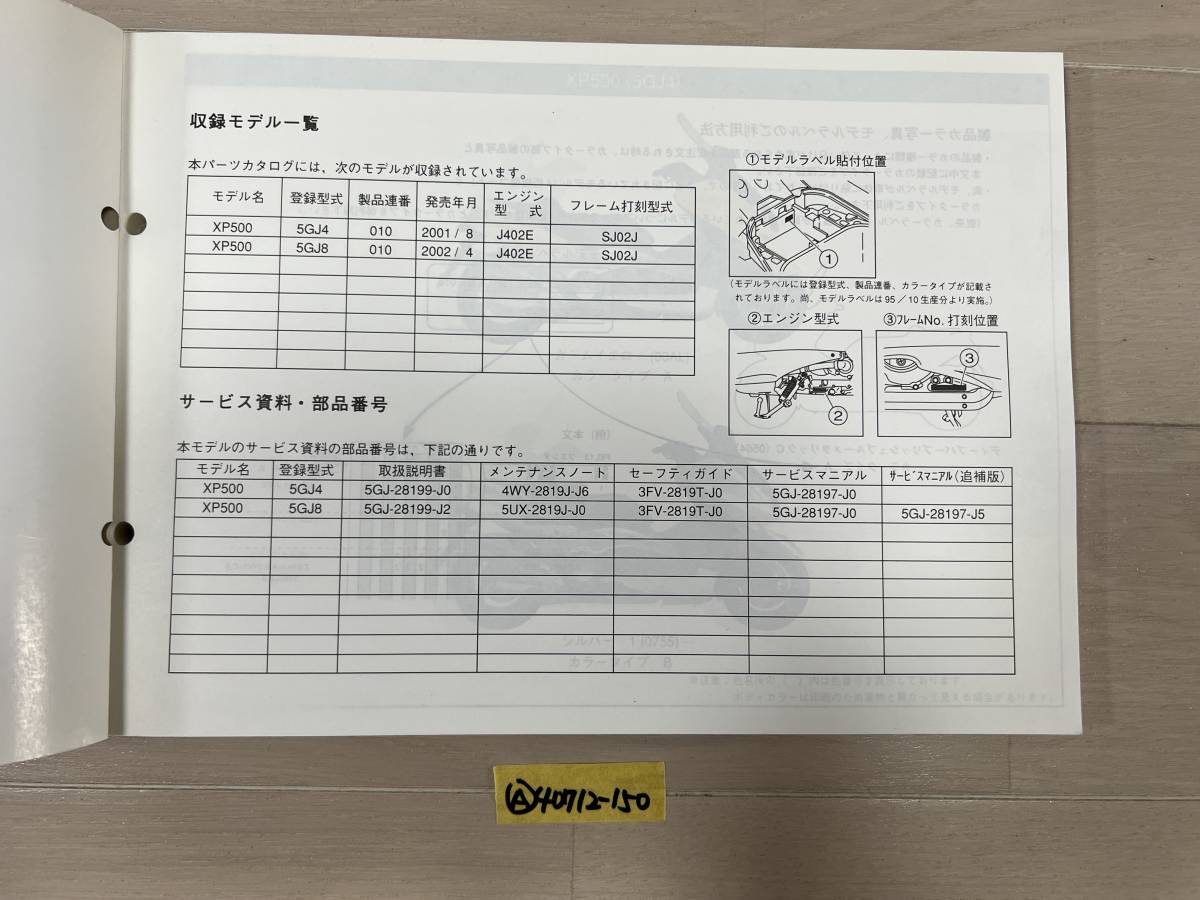 収録モデル一覧
本パーツカタログには、次のモデルが収録されています。
モデル名 登録型式 製品連番 発売年月 エンジン型式 フレーム打刻型式
XP500 5GJ4 010 2001/ 8 J402E SJ02J
XP500 5GJ8 010 2002/ 4 J402E SJ02J
①モデルラベル貼付位置
①
(モデルラベルには登録型式、製品連番、カラータイプが記載さ
れております。尚、モデルラベルは95/10生産分より実施。)
②エンジン型式
②
③フレームNo. 打刻位置
③
サービス資料・部品番号
本モデルのサービス資料の部品番号は、下記の通りです。
モデル名 登録型式 取扱説明書 メンテナンスノート セーフティガイド サービスマニアル サービスマニアル(追補版)
XP500 5GJ4 5GJ-28199-J0 4WY-2819J-J6 3FV-2819T-J0 5GJ-28197-J0
XP500 5GJ8 5GJ-28199-J2 5UX-2819J-J0 3FV-2819T-J0 5GJ-28197-J0 5GJ-28197-J5
Ⓐ40712-150